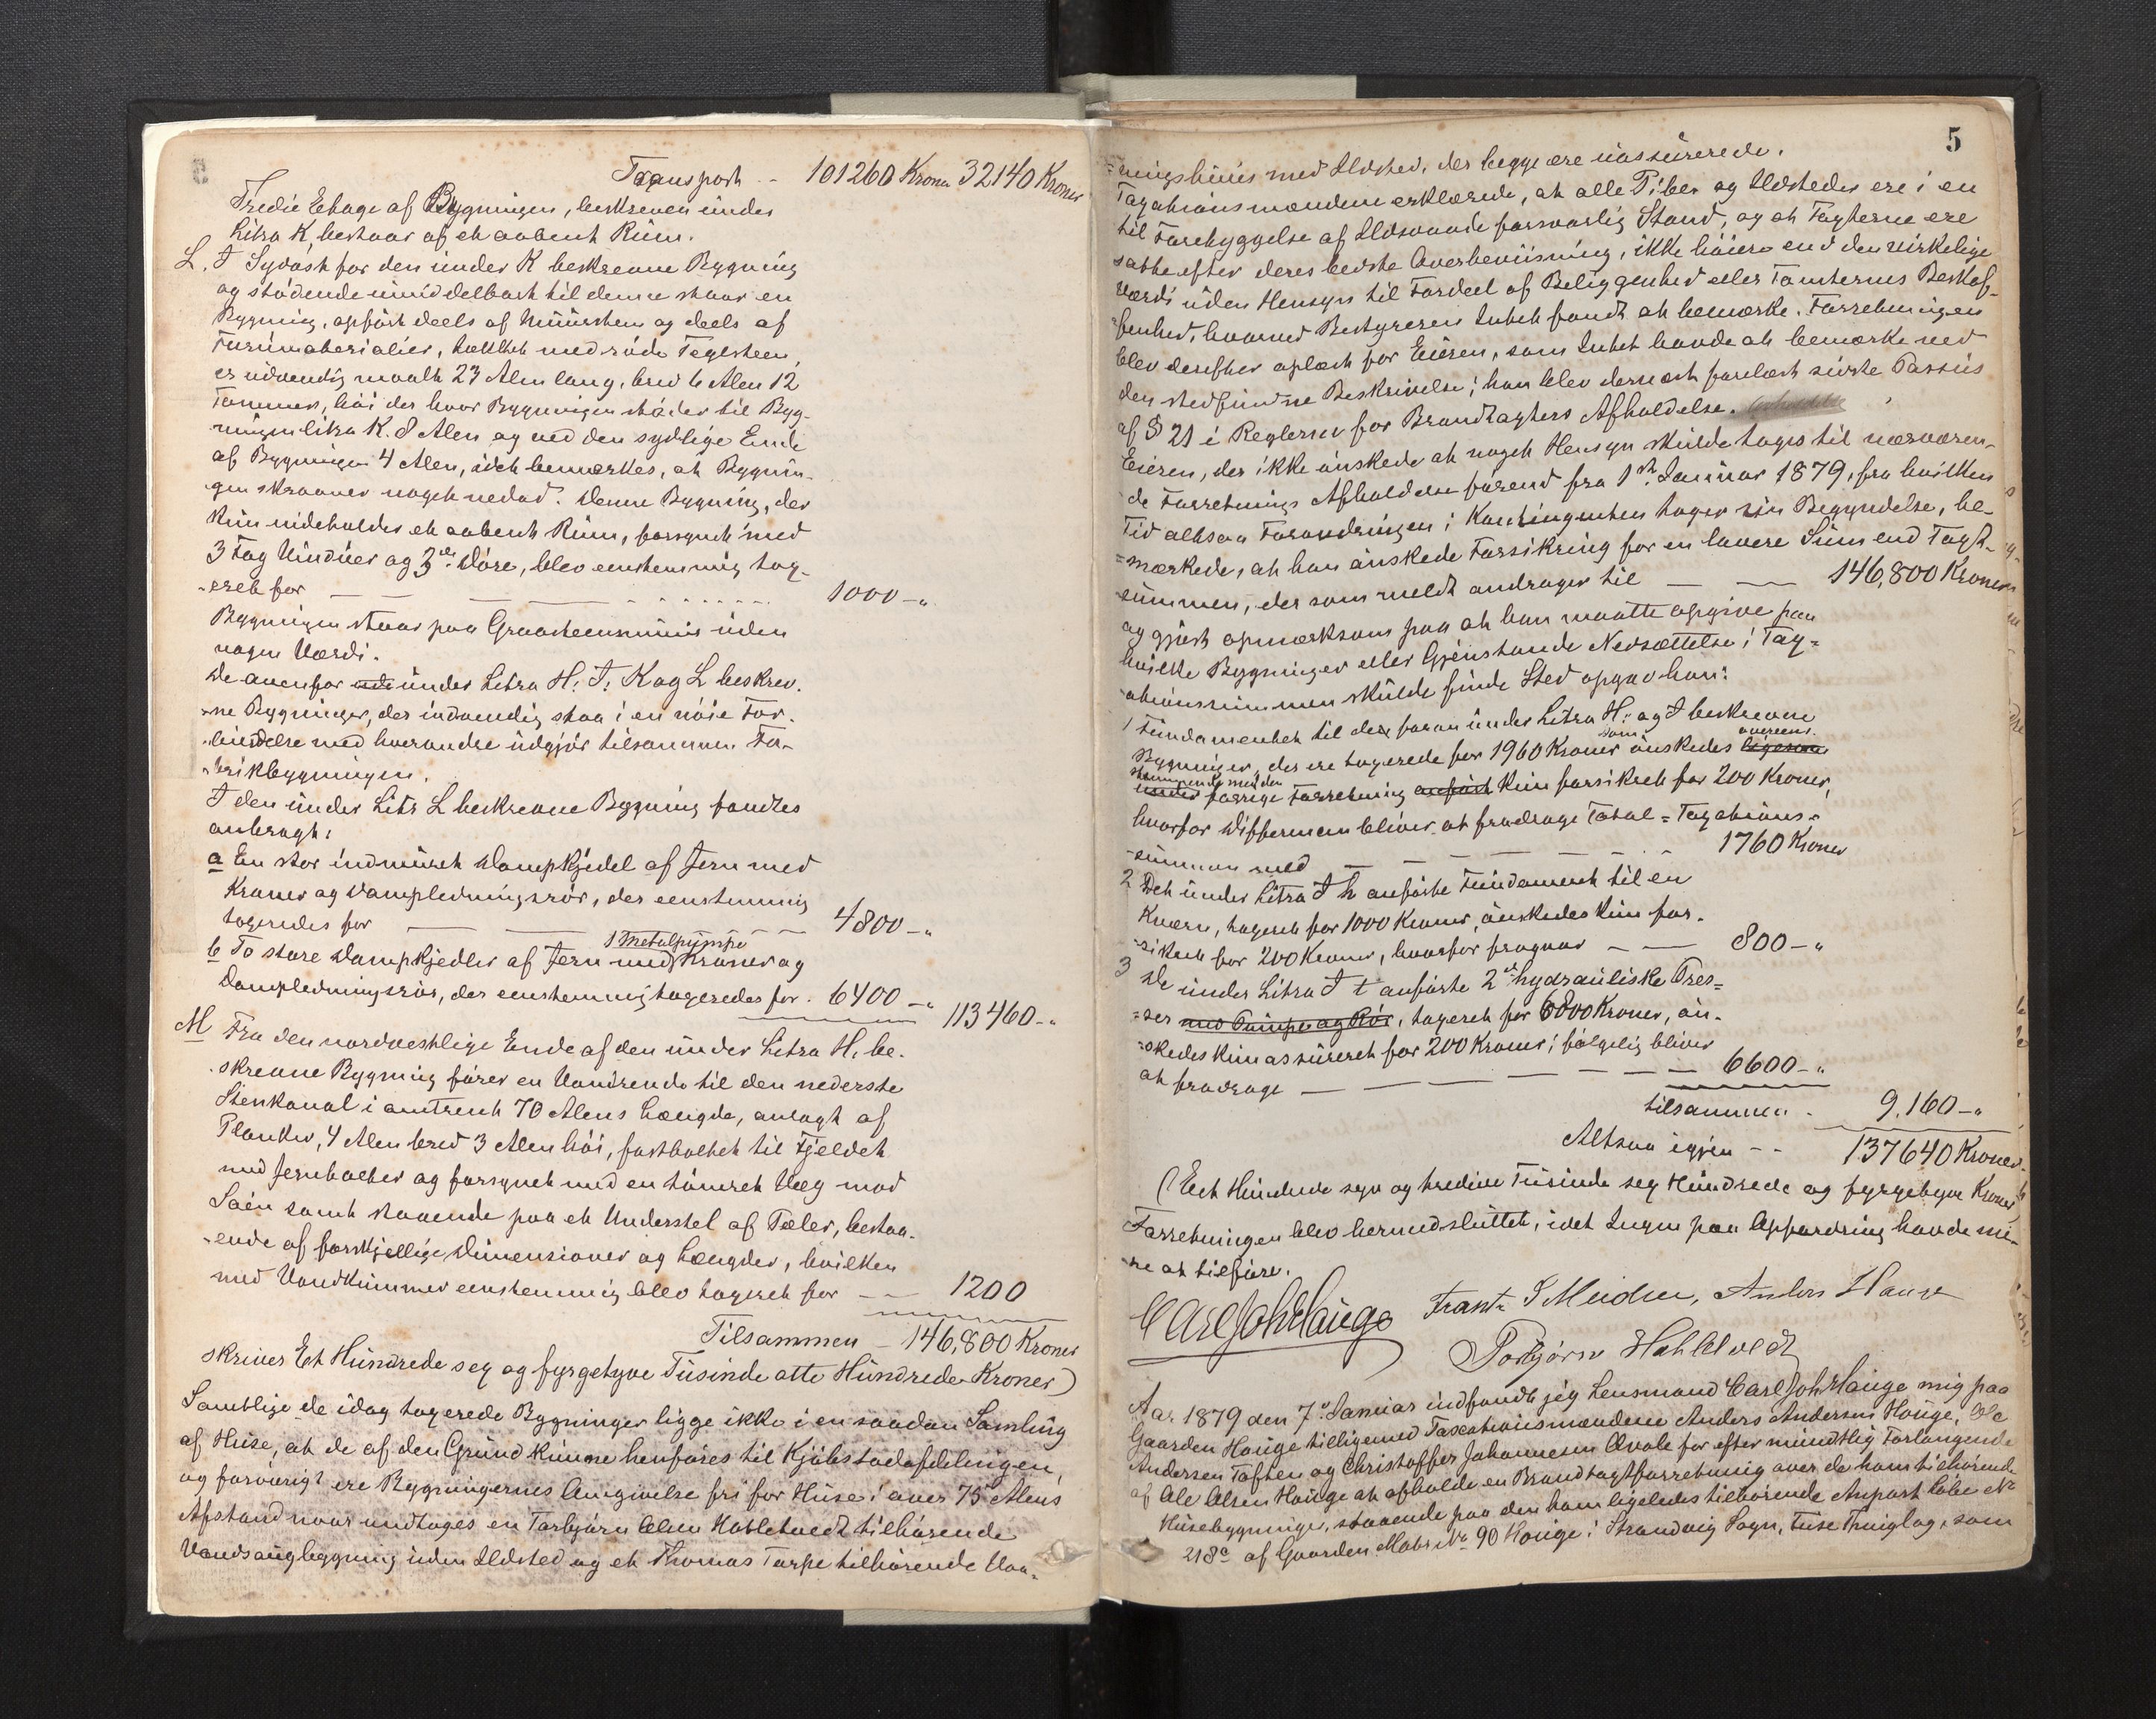 Transport - 101260 Kroner 32140 Kroner
Tredie Etage af Bygningen, beskreven under
Litra K, bestaar af et aabent Rum.
L. I Sydøst for den under K beskrevne Bygning
og stødende umiddelbart til denne staar en
Bygning, opført deels af Muursteen og deels af
Furumaterialier, tækket med røde Teglsteen,
er udvendig maalt 23 Alen lang, bred 6 Alen 12
Tommer, høi der hvor Bygningen støder til Byg-
ningen litra K. 8 Alen og ved den sydlige Ende
af Bygningen 4 Alen, idet bemærkes, at Bygnin-
gen skraaner noget nedad. Denne Bygning, der
kun indeholder et aabent Rum, forsynet med
3 Fag Vinduer og 3de Døre, blev eenstemmig tax-
-eret for — — — — 1000 -"
Bygningen staar paa Graasteensmuur uden
nogen Værdi.
De ovenfor under Litra H. I. K og L beskrev-
-ne Bygninger, der indvendig staa i en nøie For-
bindelse med hverandre udgjør tilsammen Fa-
-brikbygningen.
I den under Litr L beskrevne Bygning fandtes
anbragt:
a En stor indmuret Dampkjedel af Jern med
Kraner og Dampledningsrør, der eenstemmig
taxeredes for — — — 4800 -"
1 Metalpumpe
b To store Dampkjedler af Jern med Kraner og
Dampledningsrør, der eenstemmig taxeredes for . 6400 -"
113460 -"
M Fra den nordvestlige Ende af den under Litra H. be-
skrevne Bygning fører en Vandrende til den nederste
Stenkanal i omtrent 70 Alens Længde, anlagt af
Planker, 4 Alen bred 3 Alen høi, fastboltet til Fjeldet
med Jernbolter og forsynet med en tømret Væg mod
Søen samt staaende paa et Understel af Pæler, bestaa-
-ende af forskjellige Dimensioner og Længder, hvilken
med Vandkummer eenstemmig blev taxeret for — 1200
Tilsammen - 146,800 Kroner
skriver Et Hundrede sex og fyrgetyve Tusinde otte Hundrede Kroner)
Samtlige de idag taxerede Bygninger ligge ikke i en saadan Samling
af Huse, at de af den Grund kunne henføres til Kjøbstadafdelingen,
og forøvrigt ere Bygningernes Omgivelse fri for Huse i over 75 Alens
Afstand naar undtages en Torbjørn Olsen Hatletvedt tilhørende
Vandsaugbygning uden Ildsted og et Thomas Torpe tilhørende Vaa-
5
=ningshuus med Ildsted, der begge ere uassurerede.
Taxationsmændene erklærede, at alle Piber og Ildsteder ere i en
til Forebyggelse af Ildsvaade forsvarlig Stand, og at Taxterne ere
satte efter deres bedste Overbeviisning, ikke høiere end den virkelige
Værdi uden Hensyn til Fordeel af Beliggenhed eller Tomternes Beskaf-
fenhed, hvorved Bestyreren Intet fandt at bemærke. Forretningen
blev derefter oplæst for Eieren, som Intet havde at bemærke ved
den stedfundne Beskrivelse; han blev dernæst forelæst sidste Passus
af § 21 i Reglerne for Brandtaxters Afholdelse.
Eieren, der ikke ønskede at noget Hensyn skulde tages til nærværen-
de Forretnings Afholdelse førend fra 1ste Januar 1879, fra hvilken
Tid altsaa Forandringen i Kontingenten tager sin Begyndelse, be-
=mærkede, at han ønskede Forsikring for en lavere Sum end Taxt-
summen, der som meldt andrager til — — 146,800 Kroner
og gjort opmærksom paa at han maatte opgive paa
hvilke Bygninger eller Gjenstande Nedsættelse i Tax=
ationssummen skulde finde Sted opgav han:
1 Fundamentet til de foran under Litra H: og I beskrevne
som overeens-
Bygninger, der ere taxerede for 1960 Kroner ønskedes ligesom
stemmende med den
under forrige Forretning anført kun forsikret for 200 Kroner,
hvorfor Differencen bliver at fradrage Total = Taxations=
-summen med — — — — 1760 Kroner
2 Det under Litra I h anførte Fundament til en
Kværn, taxeret for 1000 Kroner, ønskedes kun for-
-sikret for 200 Kroner, hvorfor fragaar — — 800 -"
3 De under Litra I t anførte 2de hydrauliske Pres=
=ser med Pumper og Rør, taxeret for 6800 Kroner, øn-
=skedes kun assureret for 200 Kroner; følgelig bliver
at fradrage — — — — 6600 -"
tilsammen - 9.160 -"
Altsaa igjen - - 137640 Kroner
(Eet Hundrede syv og tredive Tusinde sex Hundrede og fyrgetyve Kroner
Forretningen blev hermed sluttet, idet Ingen paa Opfordring havde me-
re at tilføre.
Carl Joh Hauge Frantz S Meidell, Anders Hauge
Torbjørn Hatletvedt
Aar 1879 den 7de Januar indfandt jeg Lensmand Carl Joh Hauge mig paa
Gaarden Hauge tilligemed Taxationsmændene Anders Andersen Hauge, Ole
Andersen Toften og Christoffer Johannesen Øvale for efter mundtlig Forlangende
af Ole Olsen Hauge at afholde en Brandtaxtforretning over de ham tilhørende
Husebygninger, staaende paa den ham ligeledes tilhørende Anpart Løbe No
218a af Gaarden Matr No 90 Hauge i Strandvig Sogn, Fuse Thinglag, som